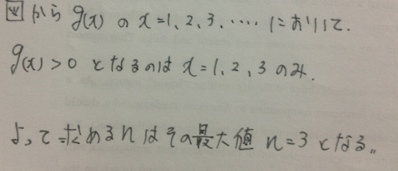 図から g(x) の x=1、2、3、‥‥ において、
g(x)>0 となるのは x=1、2、3のみ.
よって求めるnはその最大値 n=3 となる。